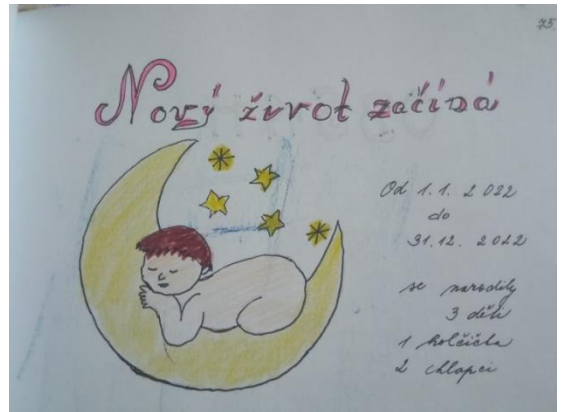 75
Nový život začíná
Od 1.1. 2022
do
31.12. 2022
se narodily
3 děti
1 holčička
2 chlapci